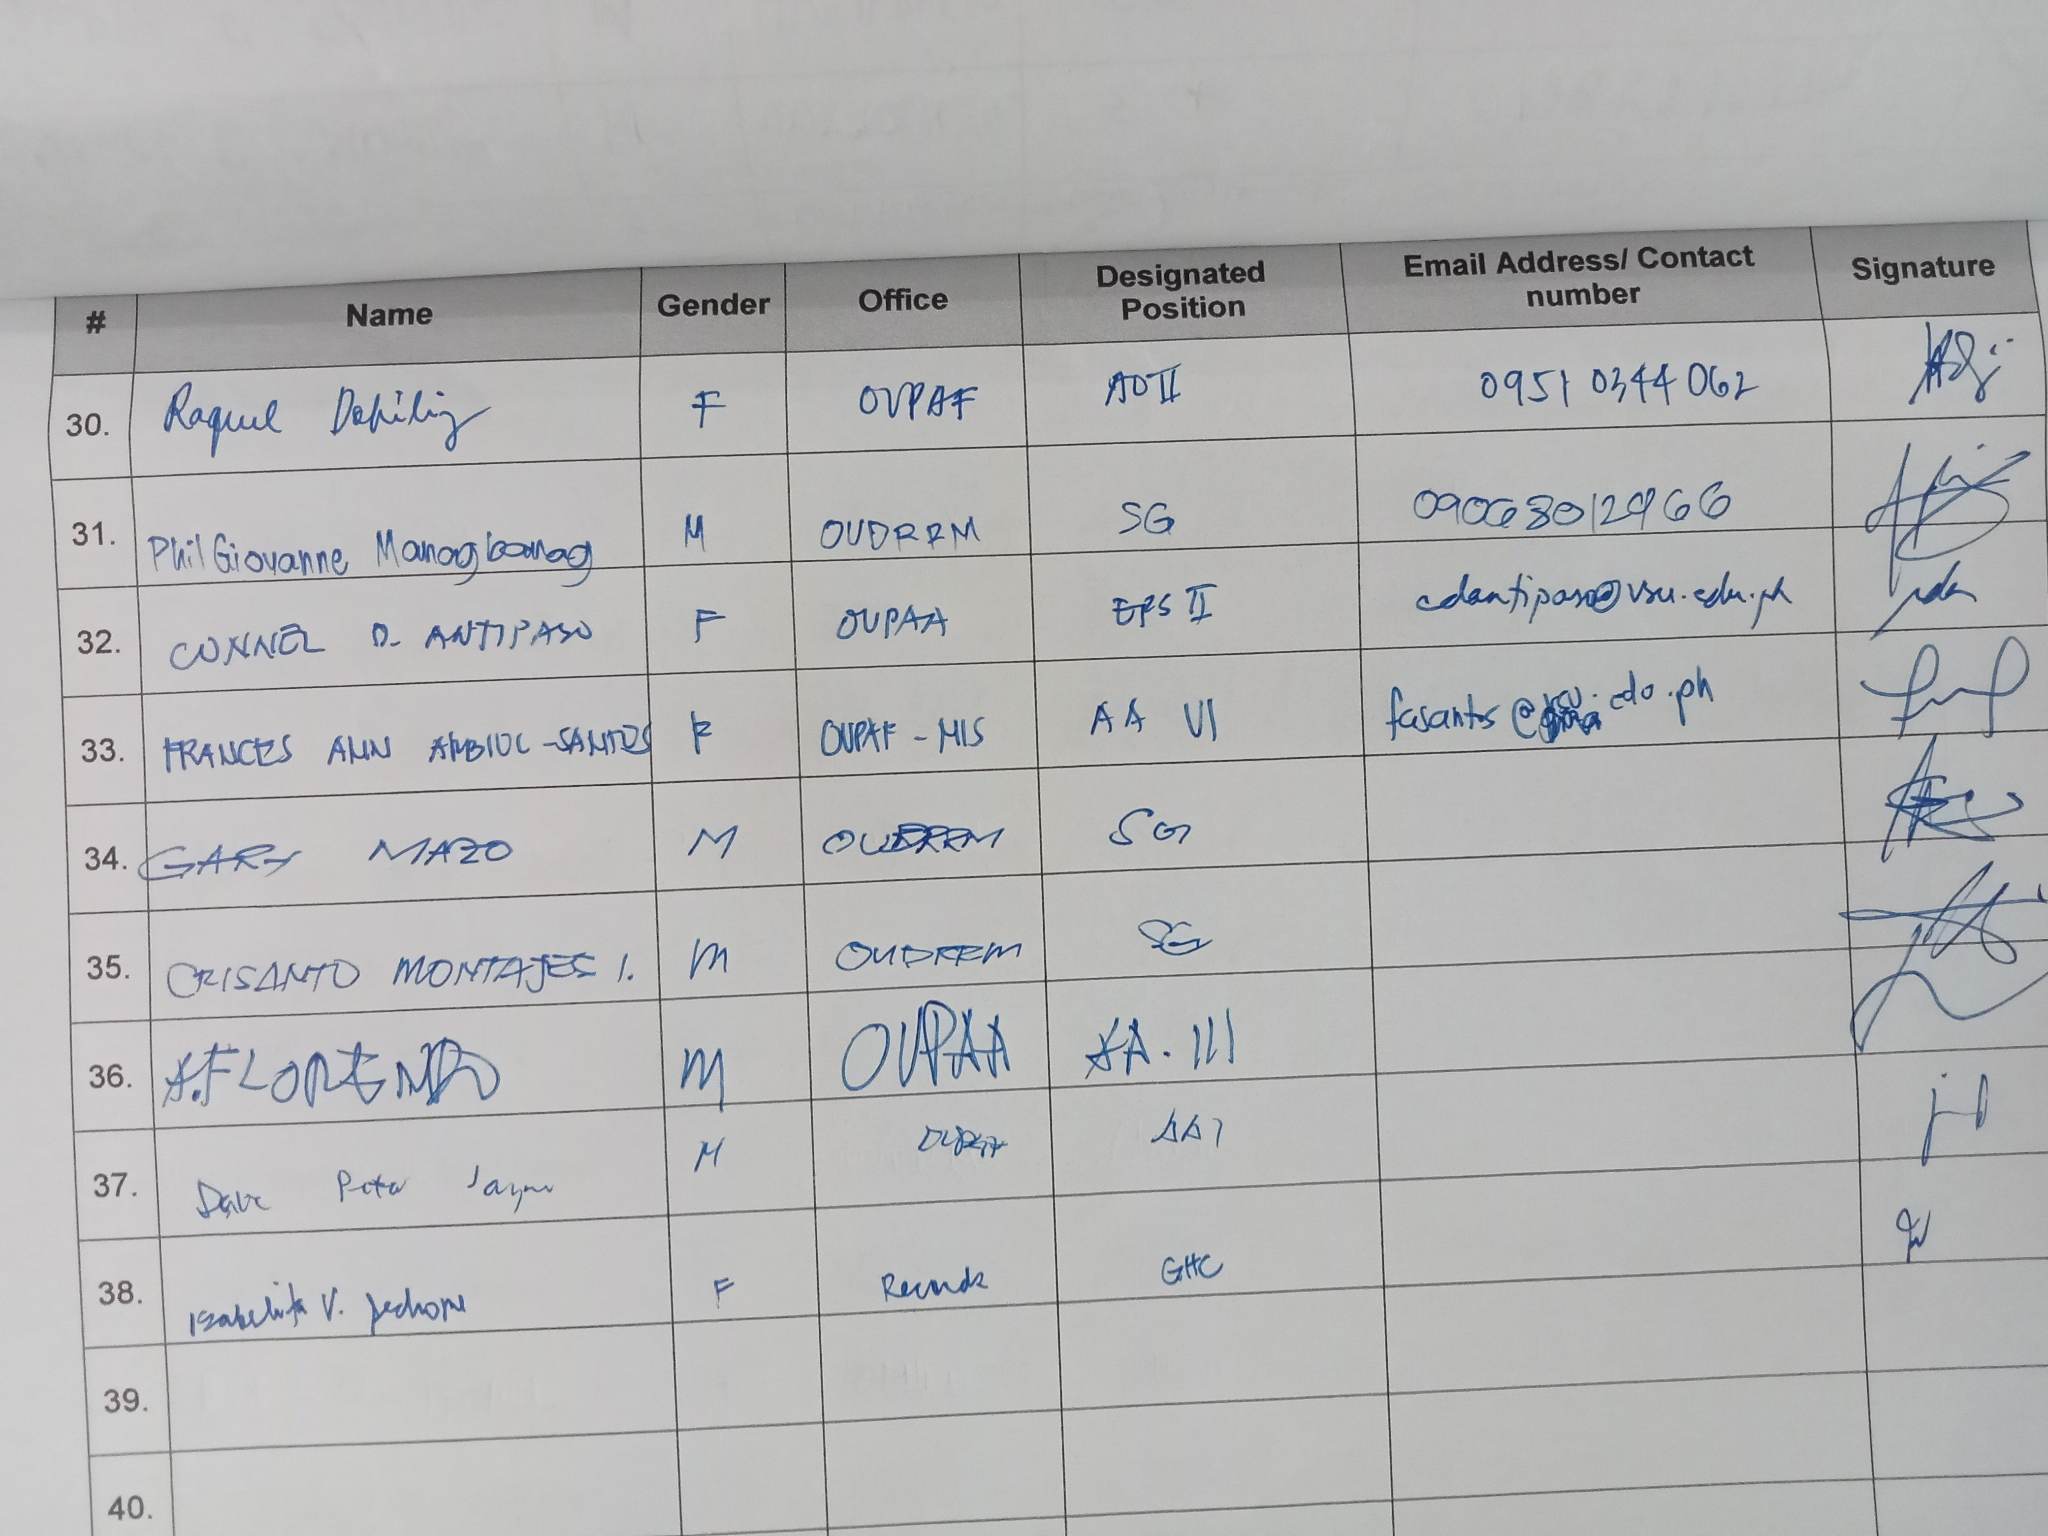 # Name Gender Office Designated Position Email Address/ Contact number Signature
30. Raquel Dahilig F OVPAF AO II 0951 0344 062
31. Phil Giovanne Managbanag M OUDRRM SG 09068012966
32. CONNEL D. ANTIPASO F OVPAA EPS II cdantipaso@vsu.edu.ph
33. FRANCES ANN -SANTOS F OVPAF - MIS AA VI fasantos@vsu.edu.ph
34. GARY MAZO M OUDRRM SG
35. CRISANTO MONTAJES I. M OUDRRM SG
36. M OVPAA AA. III
37. Dave Peter M
38. Isabelita V. F Records GHC
39.
40.